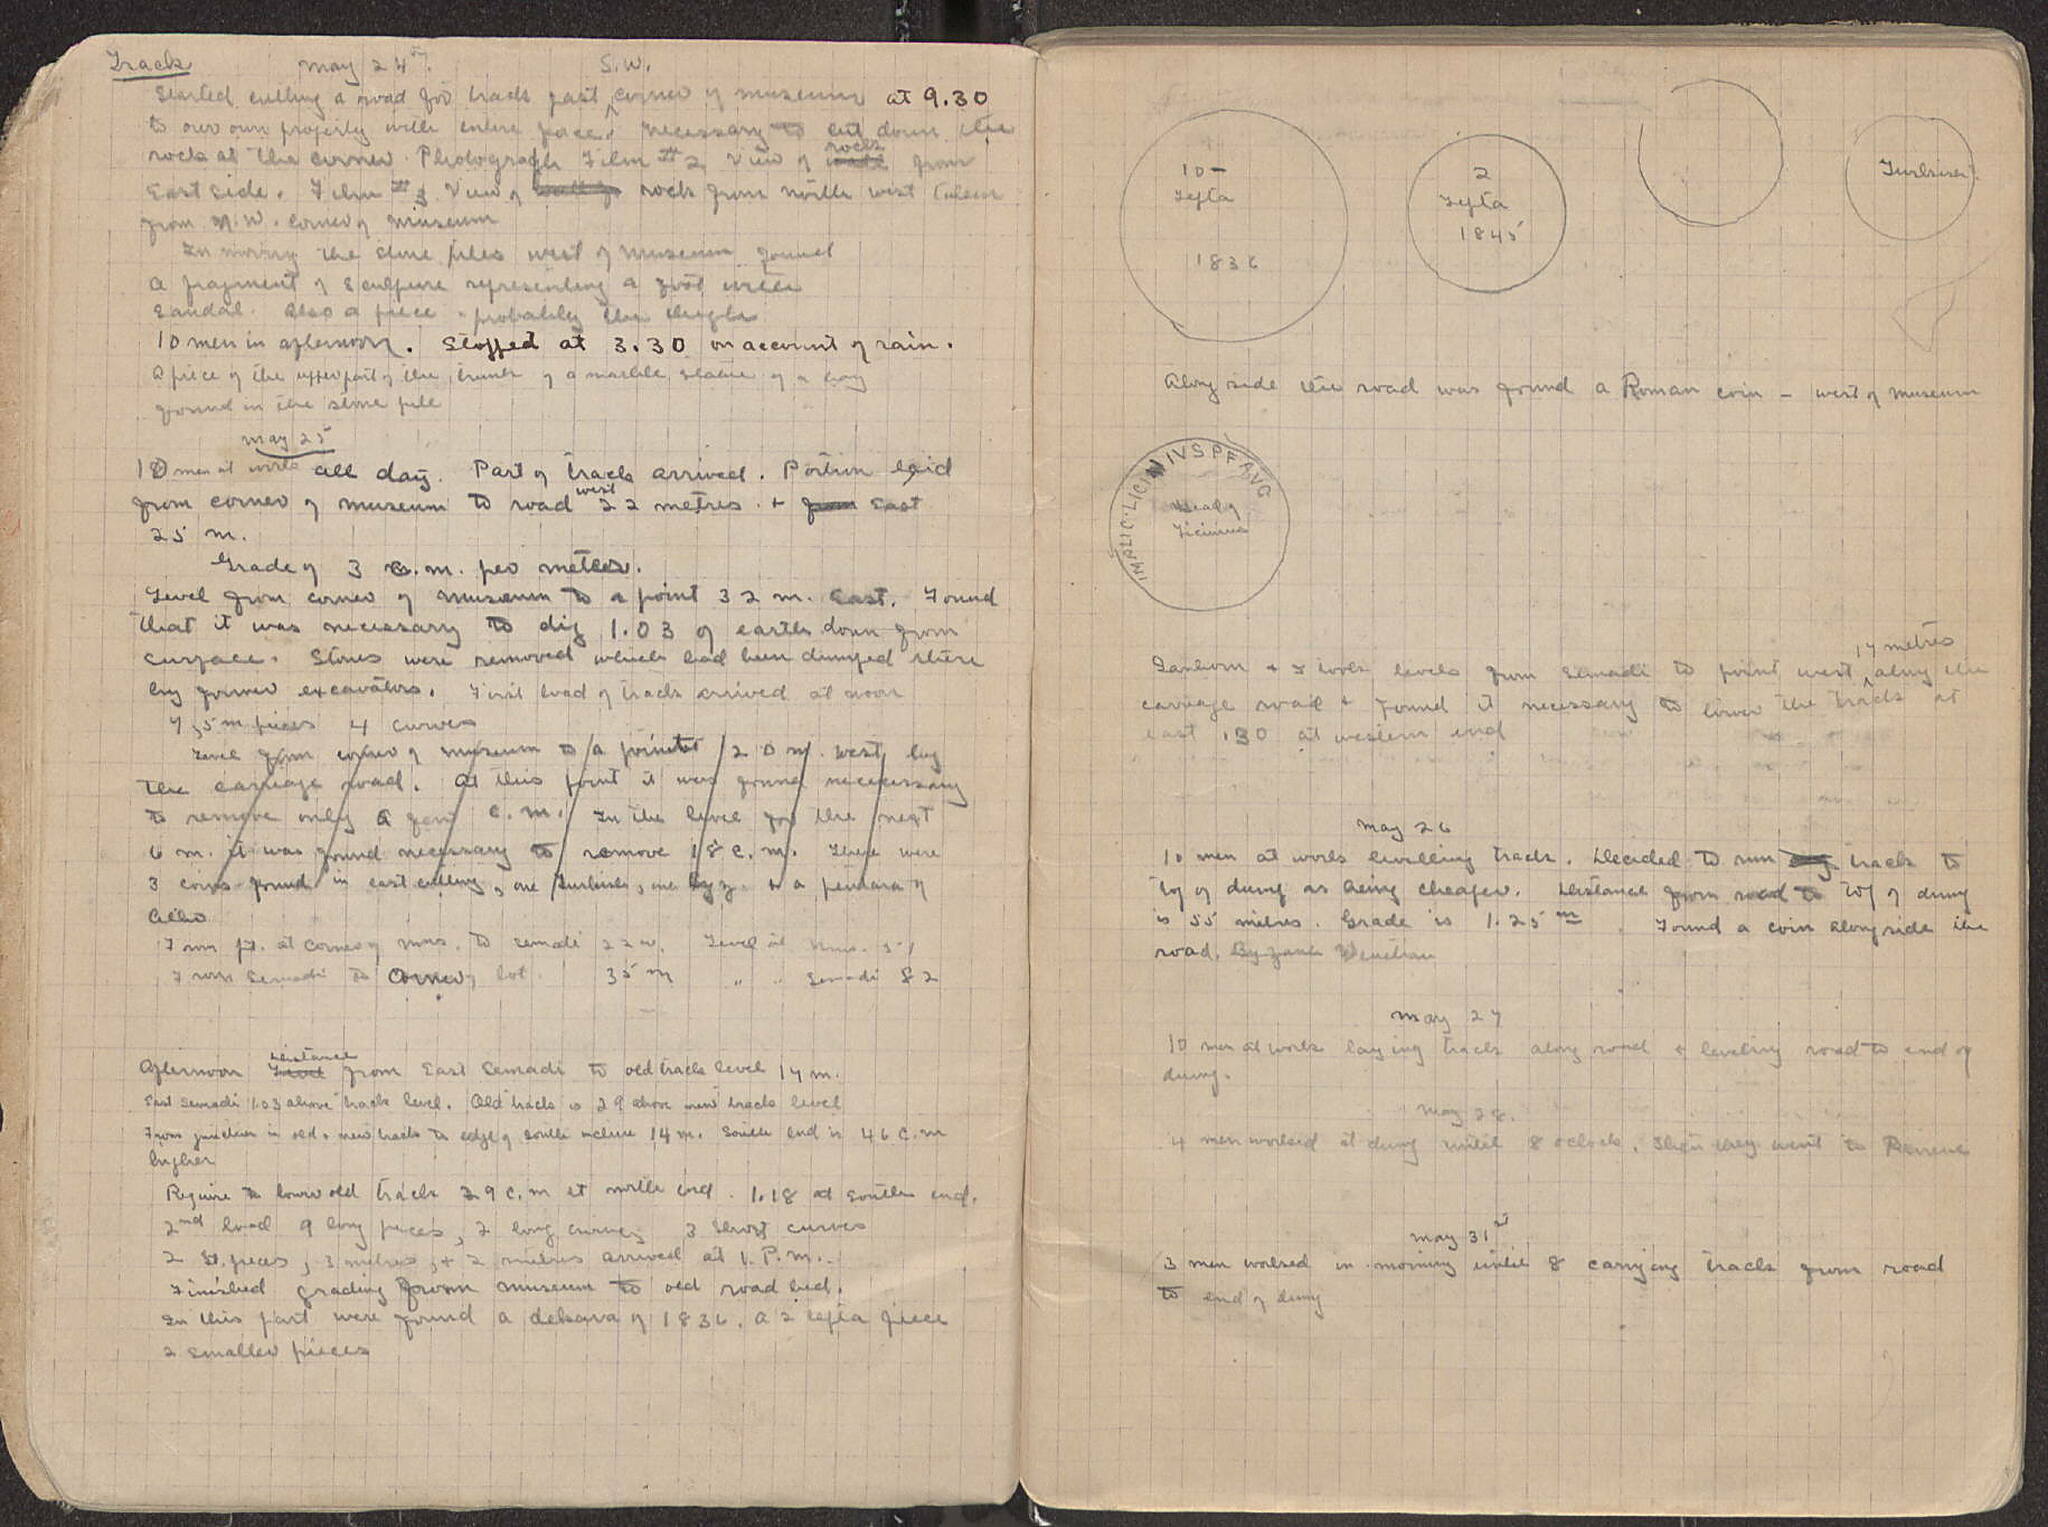 Track May 24th. S.W.
Started cutting a road for track past corner of museum at 9.30
to our own property with entire force. Necessary to cut down the
rock at the corner. Photograph Film #2 View of rock from
East side. Film #3 View of rock from north west taken
from N.W. corner of museum
In moving the stone piles west of museum found
a fragment of sculpture representing a foot with
sandal. Also a piece - probably the thigh
10 men in afternoon. Stopped at 3.30 on account of rain.
A piece of the upper part of the trunk of a marble statue of a boy
found in the stone pile
May 25
10 men at work all day. Part of track arrived. Portion laid
from corner of museum to road west 22 metres + from East
25 m.
Grade of 3 c.m. per metre.
Level from corner of museum to a point 32 m. East. Found
that it was necessary to dig 1.03 of earth down from
surface. Stones were removed which had been dumped there
by former excavators. First load of track arrived at noon
7, 5 m pieces 4 curves
Level from corner of museum to a point at 20 m. west by
the carriage road. At this point it was found necessary
to remove only a few c.m. In the level for the next
6 m. it was found necessary to remove 18 c.m. There were
3 coins found in east cutting, one Turkish, one Byz. + a pendara of
Otho
From pt. at corner of mus. to Semadi 22 m. Level at mus. 51
From Semadi to corner lot. 35 m " " Semadi 82
Afternoon Level Distance from East Semadi to old track level 17 m.
East Semadi 1.03 above track level. Old track is 29 above new track level
From junction in old + new track to edge of south incline 14 m. South end is 46 c.m
higher
Require to lower old track 29 c.m at north end. 1.18 at south end.
2nd load 9 long pieces, 2 long curves 3 short curves
2 St. pieces, 3 metres, + 2 metres arrived at 1. P.m.
Finished grading from museum to old road bed.
In this part were found a dekara of 1836. A 2 lepta piece
2 smaller pieces
10-
Lepta
1836
2
Lepta
1845
Turkish
Along side the road was found a Roman coin - west of museum
IMP.LIC.LICINIVSPFAVG
Head of
Licinius
17 metres
Sanborn + I took levels from Semadi to point west along the
carriage road + found it necessary to lower the track at
east .30 at western end
May 26
10 men at work levelling track. Decided to run track to
top of dump as being cheaper. Distance from road to top of dump
is 55 metres. Grade is 1.25 m. Found a coin alongside the
road. Byzant Venetian
May 27
10 men at work laying track along road + leveling road to end of
dump.
May 28.
4 men worked at dump until 8 oclock. Then they went to Peirene
May 31st
3 men worked in morning until 8 carrying track from road
to end of dump